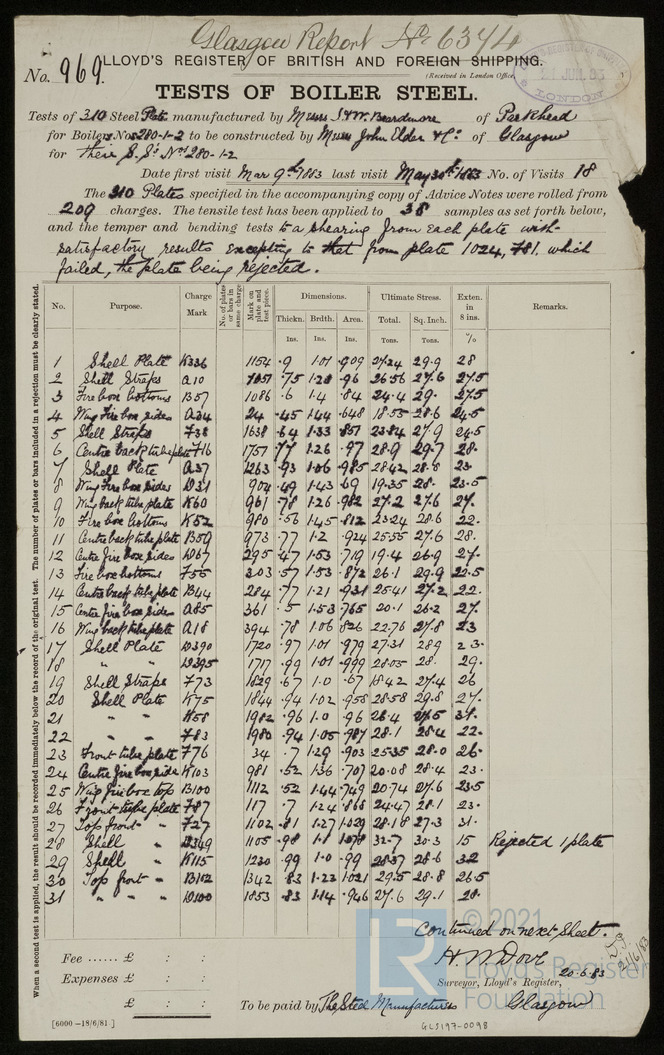 Glasgow Report No. 6374
No. 969. LLOYD'S REGISTER OF BRITISH AND FOREIGN SHIPPING.
(Received in London Office
LONDON
TESTS OF BOILER STEEL.
Tests of 310 Steel Plate manufactured by Messrs I & W. Beardmore of Parkhead
for Boilers Nos 280-1-2 to be constructed by Messrs John Elder & Co. of Glasgow
for Their S.Ss Nos 280-1-2
Date first visit Mar 9th 1883 last visit May 30th 1883 No. of Visits 18
The 310 Plates specified in the accompanying copy of Advice Notes were rolled from
209 charges. The tensile test has been applied to 38 samples as set forth below,
and the temper and bending tests to a shearing from each plate with
satisfactory results excepting to that from plate 1024, 781, which
failed, the plate being rejected.
When a second test is applied, the result should be recorded immediately below the record of the original test. The number of plates or bars included in a rejection must be clearly stated.
No. Purpose. Charge Mark No. of plates or bars in same charge Mark on plate and test piece. Dimensions. Ultimate Stress. Exten. in 8 ins. Remarks.
Thickn. Brdth. Area. Total. Sq. Inch.
Ins. Ins. Tons. Tons. %
1 Shell Plate K336 1154 .9 1.01 .909 27.24 29.9 28
2 Shell Straps A10 .75 1.28 .96 26.56 27.6 27.5
3 Fire box bottoms B57 1086 .6 1.4 .84 24.4 29. 27.5
4 Wing Fire box sides A34 24 .45 1.44 .648 18.55 28.6 24.5
5 Shell Straps F38 1638 .64 1.33 .851 23.84 27.9 24.5
6 Centre back tube plate F16 1757 .77 1.26 .97 28.9 29.7 28.
7 Shell Plate A37 1263 .93 1.06 .985 28.42 28.8 23
8 Wing Fire box sides D31 904 .49 1.43 .69 19.35 28. 23.5
9 Wing back tube plate K60 961 .78 1.26 .982 27.2 27.6 27.
10 Fire box bottoms K52 980 .56 1.45 .812 23.24 28.6 22.
11 Centre back tube plate B59 973 .77 1.2 .924 25.55 27.6 28.
12 Centre fire box sides D67 295 .47 1.53 .719 19.4 26.9 27.
13 Fire box bottoms F55 303 .57 1.53 .872 26.1 29.9 22.5
14 Centre back tube plate B44 284 .77 1.21 .931 25.41 27.2 22.
15 Centre fire box sides A85 361 .5 1.53 .765 20.1 26.2 27.
16 Wing back tube plate A18 394 .78 1.06 .826 22.76 27.8 23
17 Shell Plate D390 1720 .97 1.01 .979 27.31 28.9 23.
18 " " D395 1717 .99 1.01 .999 28.05 28. 29.
19 Shell Straps F73 1829 .67 1.0 .67 18.42 27.4 26
20 Shell Plate K75 1844 .94 1.02 .958 28.58 29.8 27.
21 " " K58 1982 .96 1.0 .96 26.4 27.5 31.
22 " " F83 1980 .94 1.05 .987 28.1 28.4 22.
23 Front tube plate F76 34 .7 1.29 .903 25.35 28.0 26.
24 Centre fire box side K103 981 .52 1.36 .707 20.08 28.4 23.
25 Wing fire box top B100 1112 .52 1.44 .749 20.74 27.6 23.5
26 Front tube plate F87 117 .7 1.24 .868 24.47 28.1 23.
27 Top front " F27 1102 .81 1.27 1.029 28.18 27.3 31.
28 Shell " D349 1105 .98 1.1 1.078 32.7 30.3 15 Rejected 1 plate
29 Shell " K115 1230 .99 1.0 .99 28.37 28.6 32
30 Top front " B112 1342 .83 1.23 1.021 29.5 28.8 26.5
31 " " D100 1853 .83 1.14 .946 27.6 29.1 28.
Continued on next Sheet.
© 2021
LR
Lloyd's Register
Foundation
H. W. Dove
20.6.83
21/6/83
Surveyor, Lloyd's Register,
Fee ...... £ : :
Expenses £ : :
£ : :
To be paid by The Steel Manufacturers Glasgow
[6000 -18/6/81]
GLS197-0098